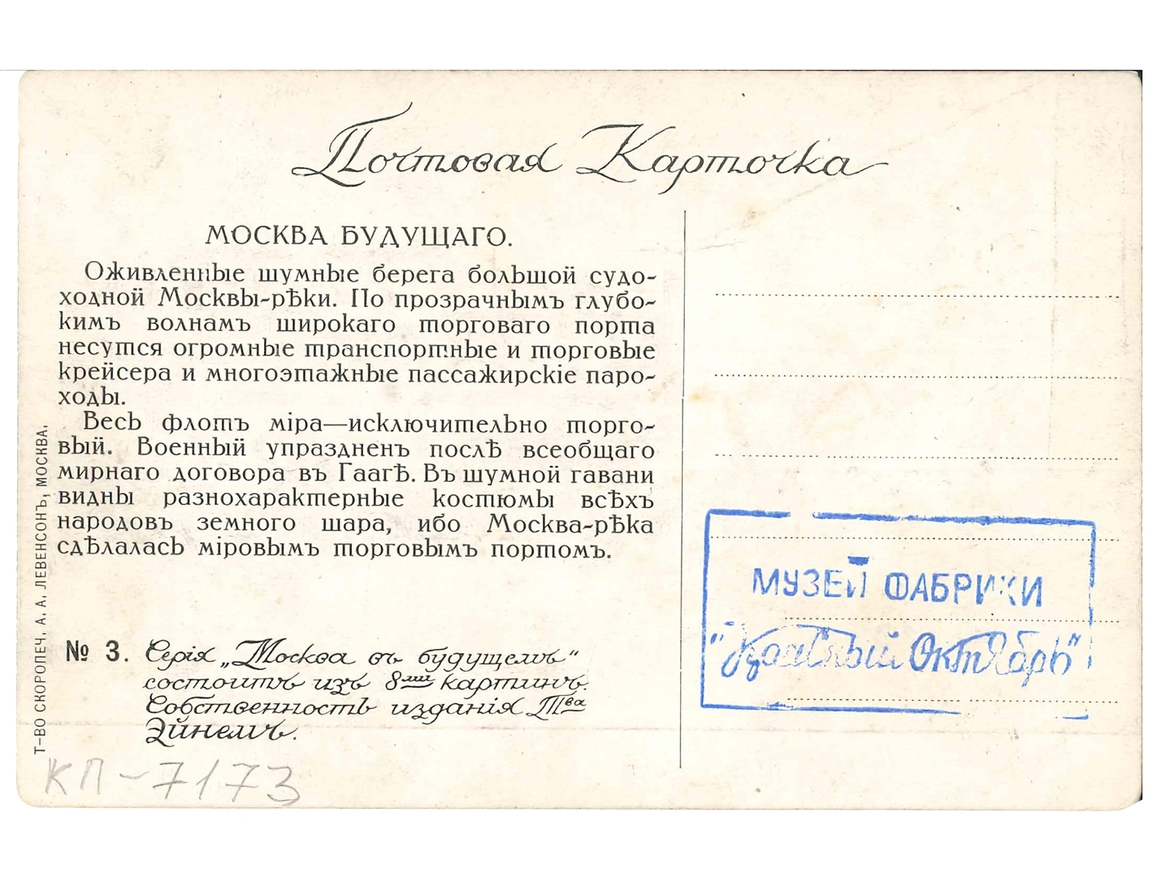 Почтовая Карточка
МОСКВА БУДУЩАГО.
Оживленные шумные берега большой судо-
ходной Москвы-рѣки. По прозрачнымъ глубо-
кимъ волнамъ широкаго торговаго порта
несутся огромные транспортные и торговые
крейсера и многоэтажные пассажирскіе паро-
ходы.
Весь флотъ міра—исключительно торго-
вый. Военный упраздненъ послѣ всеобщаго
мирнаго договора въ Гаагѣ. Въ шумной гавани
видны разнохарактерные костюмы всѣхъ
народовъ земного шара, ибо Москва-рѣка
сдѣлалась міровымъ торговымъ портомъ.
№ 3. Серія „Москва въ будущемъ“
состоитъ изъ 8ми картинъ.
Собственность изданія Тва
Эйнемъ.
Т-ВО СКОРОПЕЧ. А. А. ЛЕВЕНСОНЪ, МОСКВА.
КП-7173
МУЗЕЙ ФАБРИКИ
"Красный Октябрь"